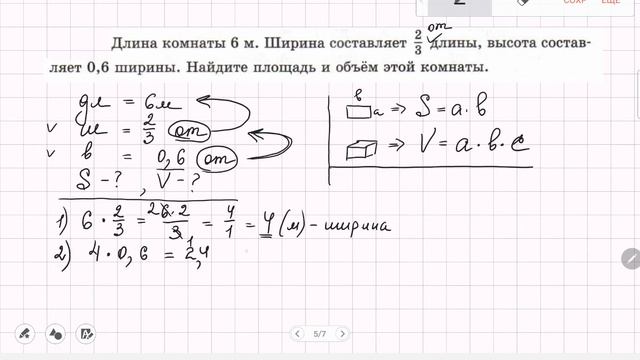 от
Длина комнаты 6 м. Ширина составляет 2/3 длины, высота состав-
ляет 0,6 ширины. Найдите площадь и объём этой комнаты.
дл = 6м
ш = 2/3 от
в = 0,6 от
S - ? , V - ?
в
а => S = а · в
=> V = а · в · с
1) 6 · 2/3 = 6·2/3 = 4/1 = 4 (м) - ширина
2) 4 · 0,6 = 2,4
5/7